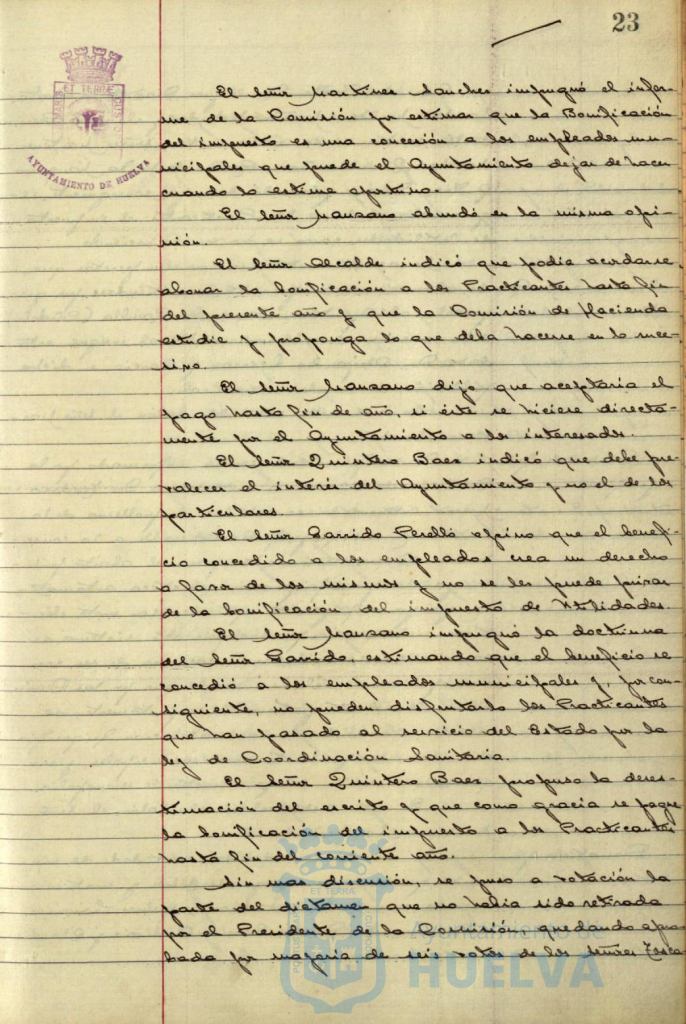 23
ET TERRÆ
AYUNTAMIENTO DE HUELVA
El señor Martinez Sanchez impugnó el infor-
me de la Comisión por estimar que la Bonificación
del impuesto es una concesión a los empleados mu-
nicipales que puede el Ayuntamiento dejar de hacer
cuando lo estime oportuno.
El señor Manzano abundó en la misma opi-
nión.
El señor Alcalde indicó que podia acordarse
abonar la bonificación a los Practicantes hasta fin
del presente año y que la Comisión de Hacienda
estudie y proponga lo que deba hacerse en lo suce-
sivo.
El señor Manzano dijo que aceptaria el
pago hasta fin de año, si éste se hiciese directa-
mente por el Ayuntamiento a los interesados.
El señor Quintero Baez indicó que debe pre-
valecer el interés del Ayuntamiento y no el de los
particulares.
El señor Garrido Perelló opino que el benefi-
cio concedido a los empleados crea un derecho
a favor de los mismos y no se les puede privar
de la bonificación del impuesto de Utilidades.
El señor Manzano impugnó la doctrina
del señor Garrido, estimando que el beneficio se
concedió a los empleados municipales y, por con-
siguiente, no pueden disfrutarlo los Practicantes
que han pasado al servicio del Estado por la
ley de Coordinación Sanitaria.
El señor Quintero Baez propuso la deses-
timación del escrito y que como gracia se pague
la bonificación del impuesto a los Practicantes
hasta fin del corriente año.
Sin mas discusión, se puso a votación la
parte del dictamen que no habia sido retirada
por el Presidente de la Comisión quedando apro-
bada por mayoria de seis votos de los señores Tosca
ET TERRA
HUELVA